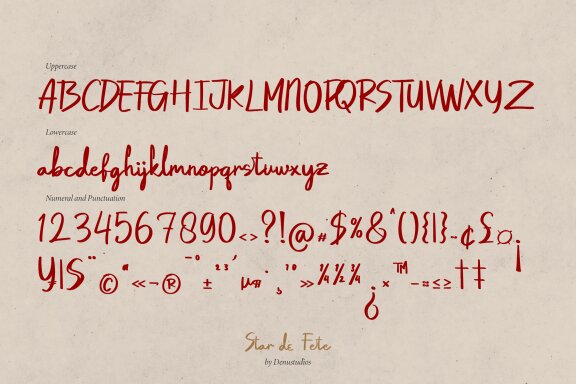 Uppercase
ABCDEFGHIJKLMNOPQRSTUVWXYZ
Lowercase
abcdefghijklmnopqrstuvwxyz
Numeral and Punctuation
1234567890<>?!@#$%&^(){|}~¢£¤¡
¥¦§¨©ª«¬®¯°±²³´µ¶·¸¹º»¼½¾¿×™−≈≤≥†‡
Star de Fete
by Denustudios